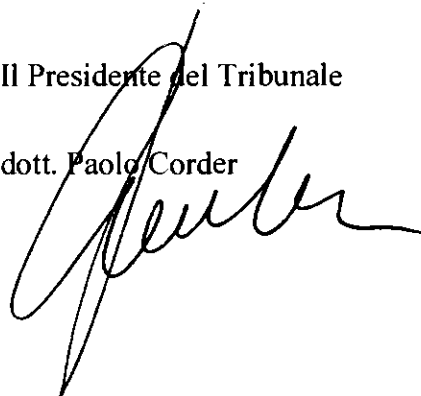 Il Presidente del Tribunale
dott. Paolo Corder